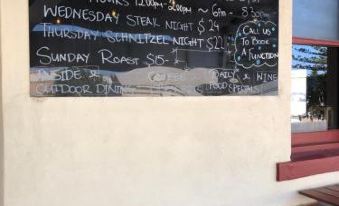 HOURS 12:00pm - 2:00pm ~ 6pm - 8:30pm
WEDNESDAY STEAK NIGHT $24
THURSDAY SCHNITZEL NIGHT $22
SUNDAY ROAST $15-
INSIDE &
OUTDOOR DINING
COFFEE
DAILY
FOOD SPECIALS
& WINE
CALL US
TO BOOK
A
FUNCTION